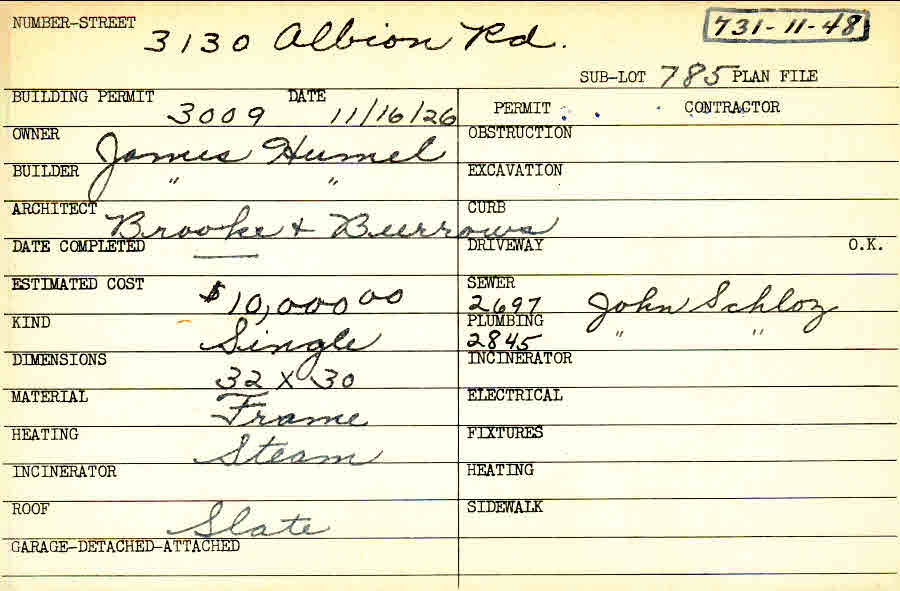 NUMBER-STREET 3130 Albion Rd. 731-11-48
SUB-LOT 785 PLAN FILE
BUILDING PERMIT 3009 DATE 11/16/26 PERMIT CONTRACTOR
OWNER James Humel OBSTRUCTION
BUILDER " " EXCAVATION
ARCHITECT Brooke + Burrows CURB
DATE COMPLETED — DRIVEWAY O.K.
ESTIMATED COST $10,000 00 SEWER 2697 John Schloz
KIND Single PLUMBING 2845 " "
DIMENSIONS 32 x 30 INCINERATOR
MATERIAL Frame ELECTRICAL
HEATING Steam FIXTURES
INCINERATOR HEATING
ROOF Slate SIDEWALK
GARAGE-DETACHED-ATTACHED